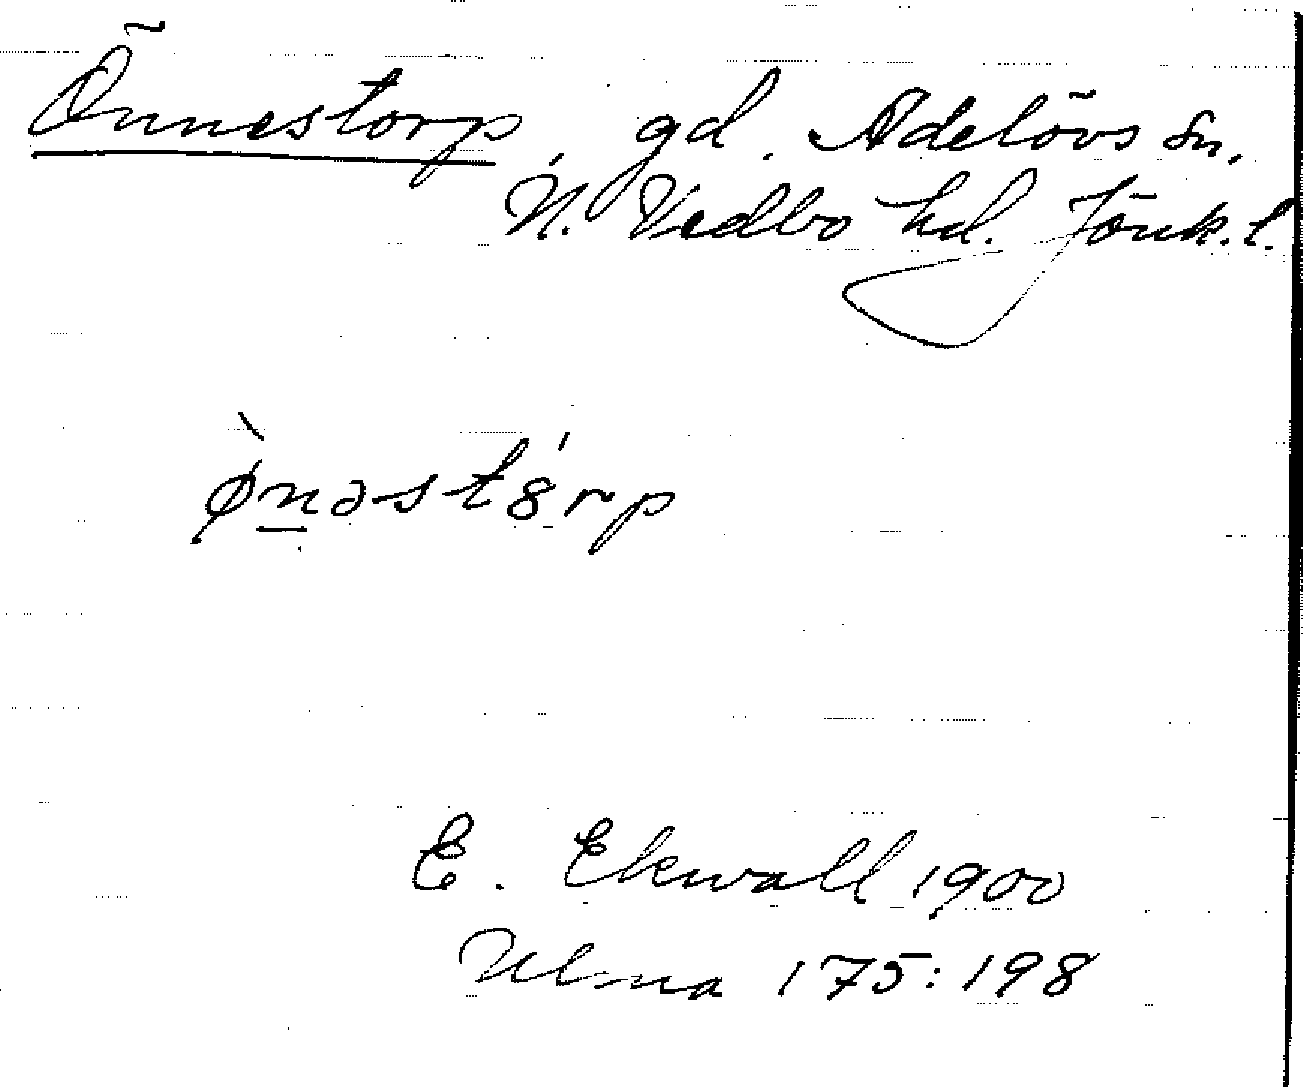 Önnestorp, gd. Adelövs sn.
N. Vedbo hd. Jönk. l.
ø̀n̲əstȣ́rp
E. Ekwall 1900
Ulma 175:198